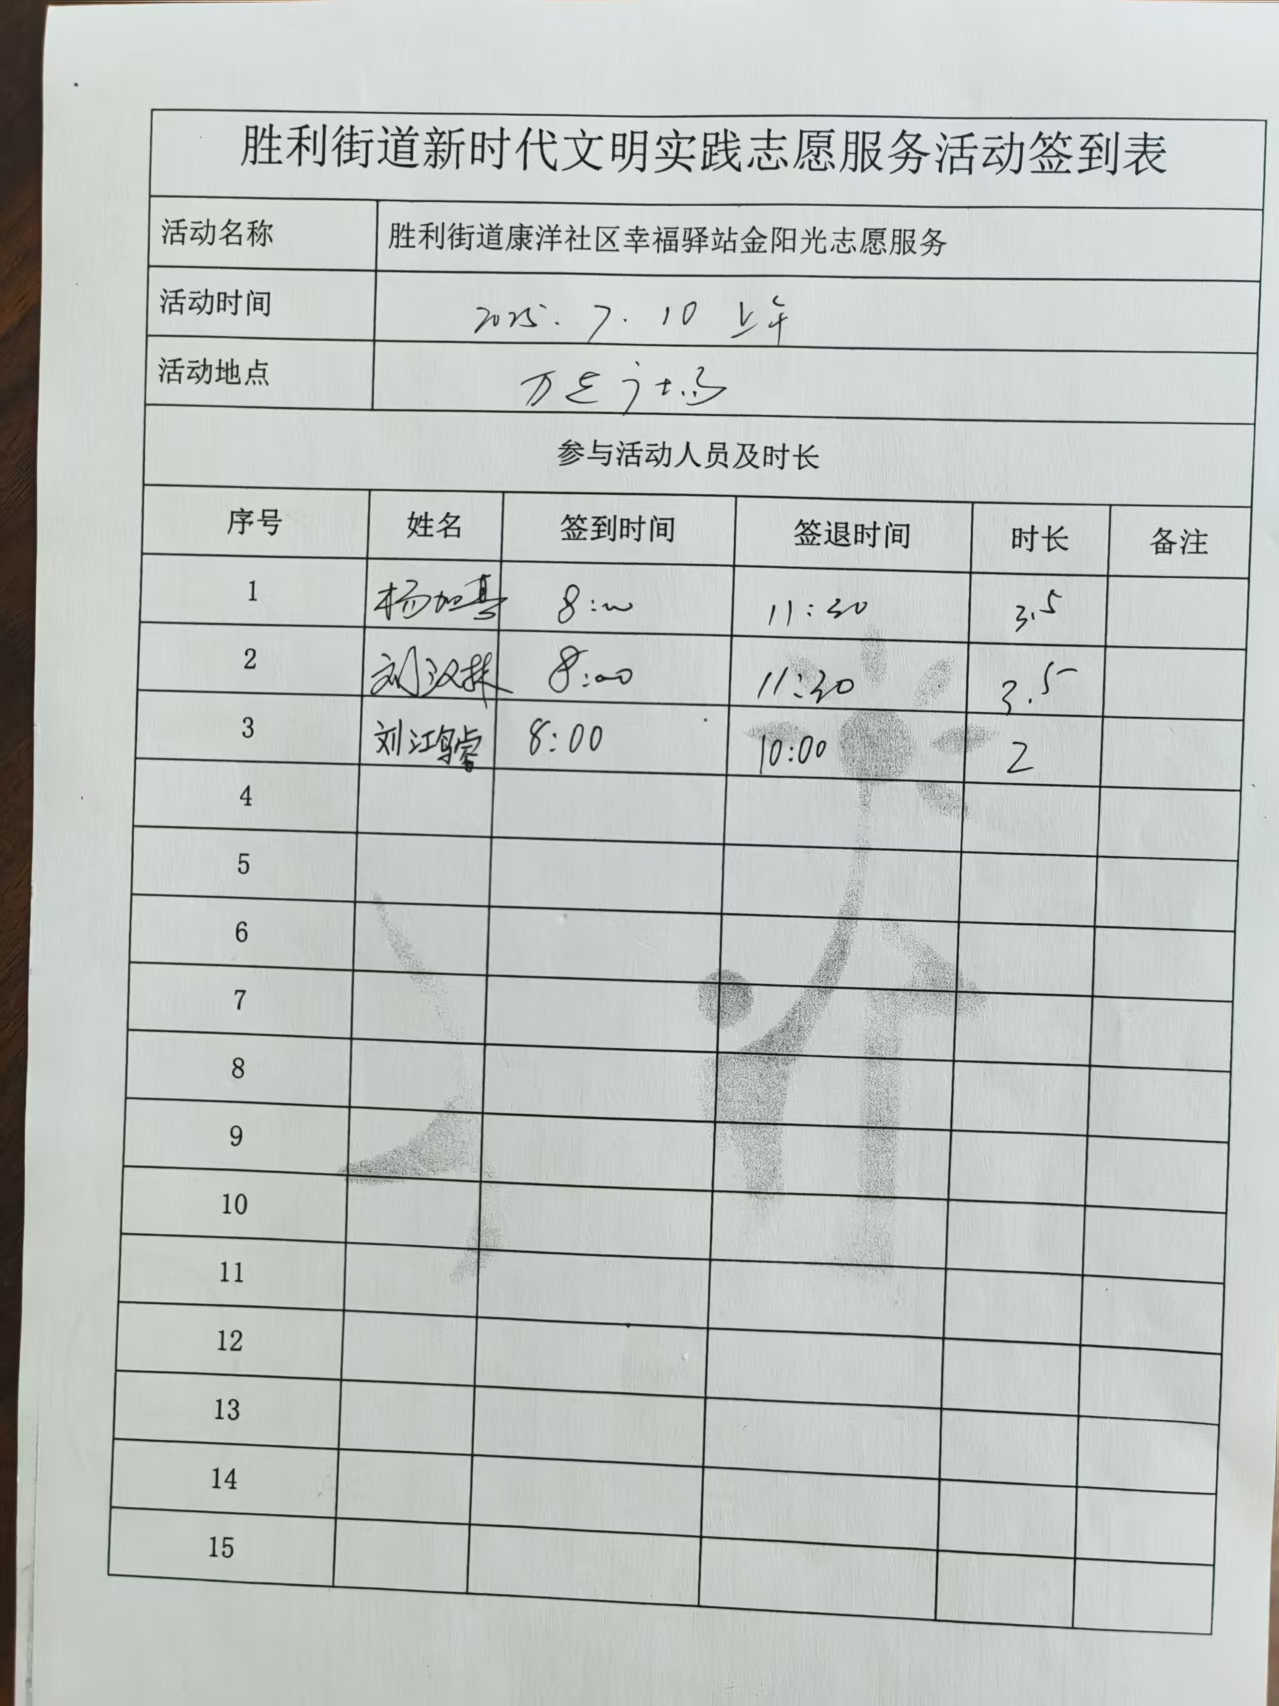 胜利街道新时代文明实践志愿服务活动签到表
活动名称 胜利街道康洋社区幸福驿站金阳光志愿服务
活动时间 2025.7.10 上午
活动地点 万达广场
参与活动人员及时长
序号 姓名 签到时间 签退时间 时长 备注
1 杨如喜 8:00 11:30 3.5
2 刘汉林 8:00 11:30 3.5
3 刘江鸿睿 8:00 10:00 2
4
5
6
7
8
9
10
11
12
13
14
15